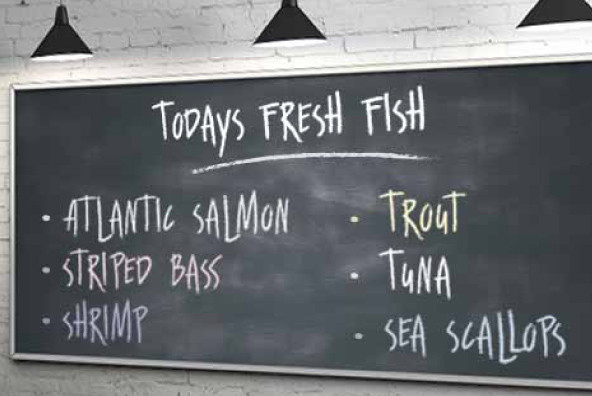 TODAYS FRESH FISH
• ATLANTIC SALMON
• STRIPED BASS
• SHRIMP
• TROUT
• TUNA
• SEA SCALLOPS